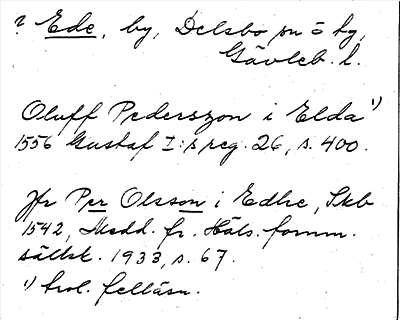 ? Ede, by, Delsbo sn o fg,
Gävleb. l.
Oluff Pederszon i Elda ¹)
1556 Gustaf I:s reg. 26, s. 400.
Jfr Per Olsson i Edhe, Skb
1542, Medd. fr. Häls. fornm.
sällsk. 1933, s. 67.
¹) trol. felläsn.